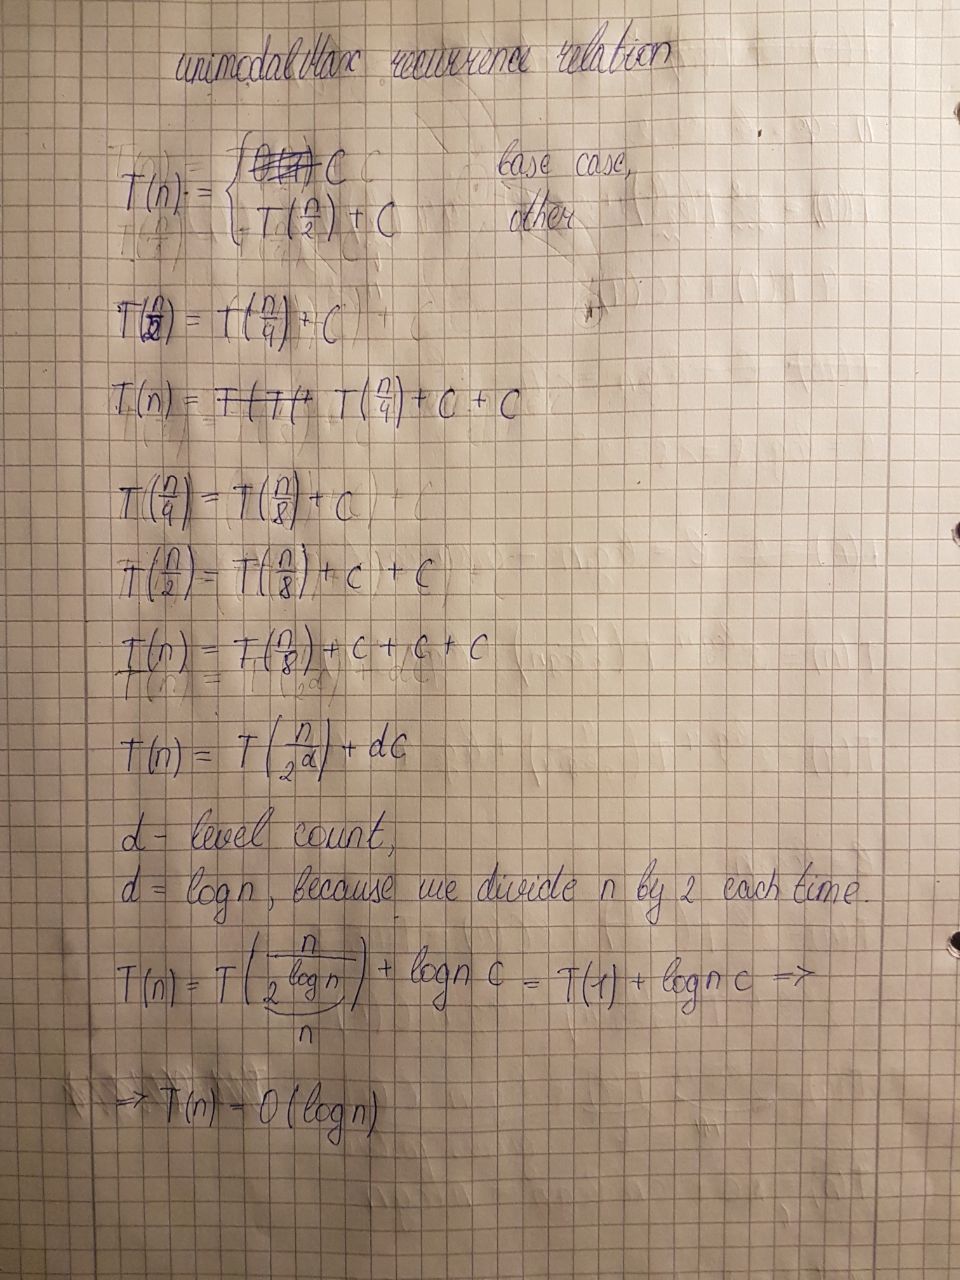 unimodalMax recurrence relation
T(n) = { C base case,
T(n/2) + C other
T(n/2) = T(n/4) + C
T(n) = T(n/4) + C + C
T(n/4) = T(n/8) + C
T(n/2) = T(n/8) + C + C
T(n) = T(n/8) + C + C + C
T(n) = T(n/2^d) + dC
d - level count,
d = log n, because we divide n by 2 each time.
T(n) = T(n/2^log n) + log n C = T(1) + log n C =>
n
=> T(n) = O(log n)